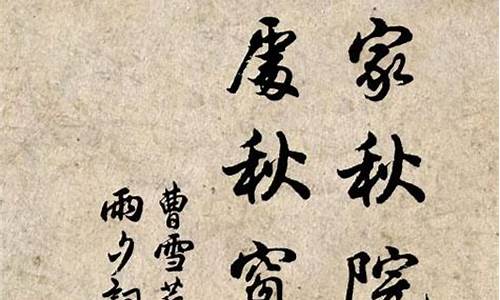 家秋院
處秋窗
曹雪芹
雨夕詞